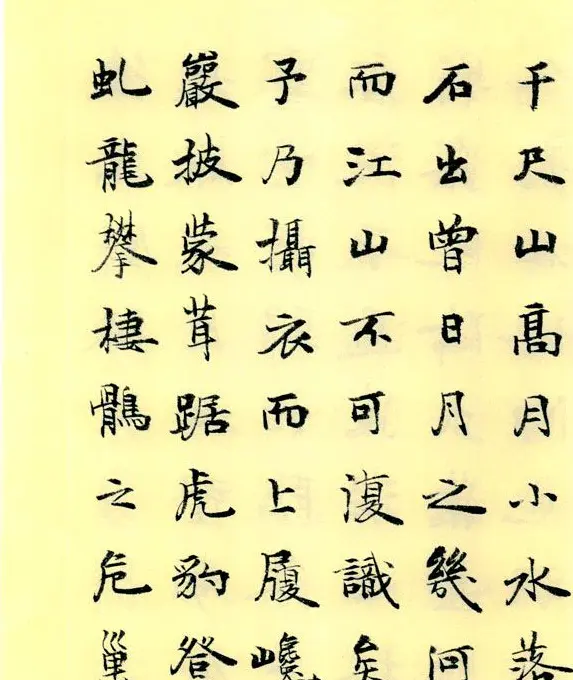 千尺山髙月小水落
石出曾日月之幾何
而江山不可復識矣
予乃攝衣而上履巉
巖披蒙茸踞虎豹登
虬龍攀棲鶻之危巢